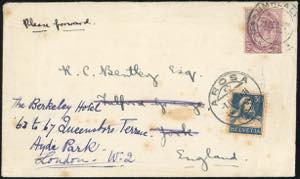 Please forward.
R. C. Bentley Esq.
The Berkeley Hotel
63 to 67 Queensboro Terrace
York
Hyde Park.
London - W.2
England.
AROSA
HELVETIA